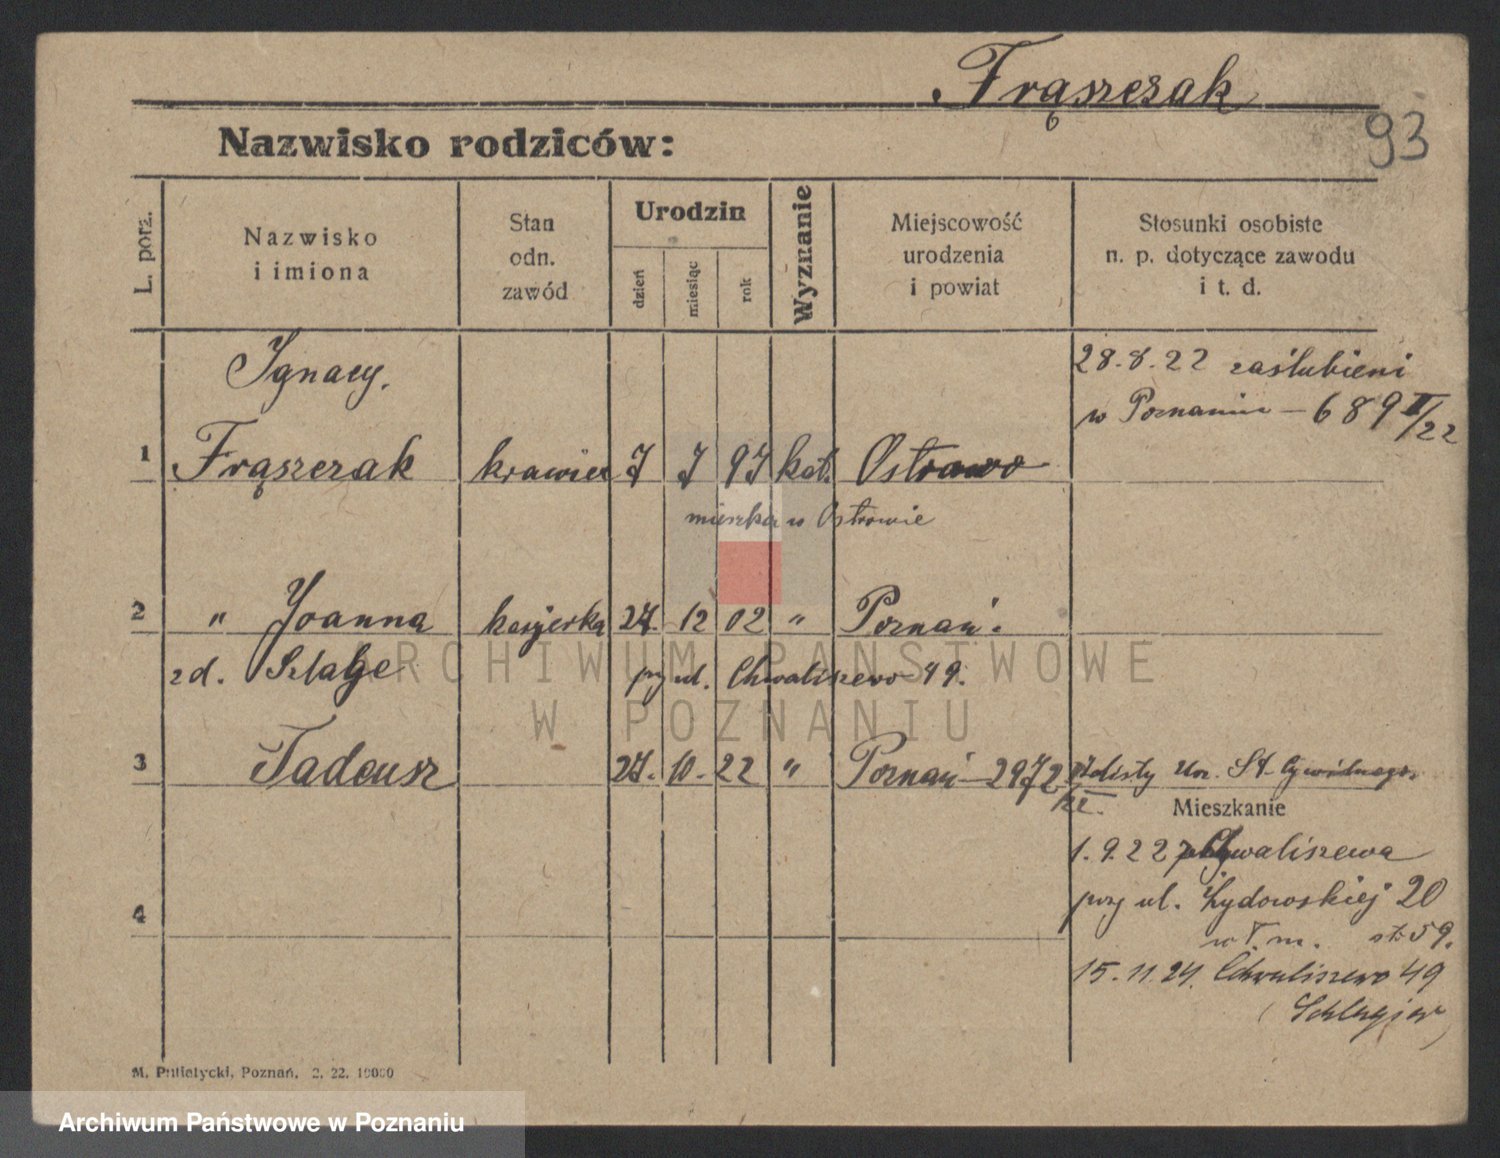 Frąszczak
93
Nazwisko rodziców:
L. porz.
Nazwisko
i imiona
Stan
odn.
zawód
Urodzin
dzień
miesiąc
rok
Wyznanie
Miejscowość
urodzenia
i powiat
Stosunki osobiste
n. p. dotyczące zawodu
i t. d.
Ignacy.
28.8.22 zaślubieni
w Poznaniu – 689 II/22
1 Frąszczak krawiec 7 7 97 kat. Ostrowo
mieszka w Ostrowie
2 " Joanna kasjerka 27. 12 02 " Poznań.
zd. Szlage przy ul. Chwaliszewo 49.
3 Tadeusz 27. 10. 22 " Poznań – 2972 z listy Urz. St. Cywilnego.
Mieszkanie
1.9.22 Chwaliszewa
przy ul. Żydowskiej 20
w t. m. str 59.
4
15.11.24. Chwaliszewo 49
M. Putiatycki, Poznań, 2. 22. 10000
ARCHIWUM PAŃSTWOWE
W POZNANIU
Archiwum Państwowe w Poznaniu